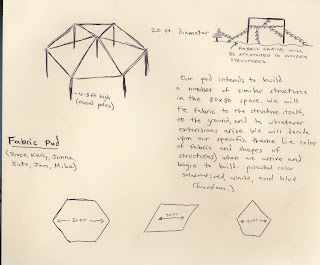 20 ft. diameter
FABRIC CHAINS WILL
BE ATTACHED TO WOODEN
STRUCTURES
6-8 ft high
(metal poles)
Our pod intends to build
a number of similar structures
in the 80x80 space. We will
tie fabric to the structure itself,
to the ground, and to whatever
extensions arise. We will decide
upon our specific theme (i.e color
of fabric and shapes of
structures) when we arrive and
begin to build. potential color
scheme: red, white, and blue
(freedom.)
Fabric Pod
Kelly, Jenna
Kuto, Jen, Mike)
20 FT
20 FT
20 FT